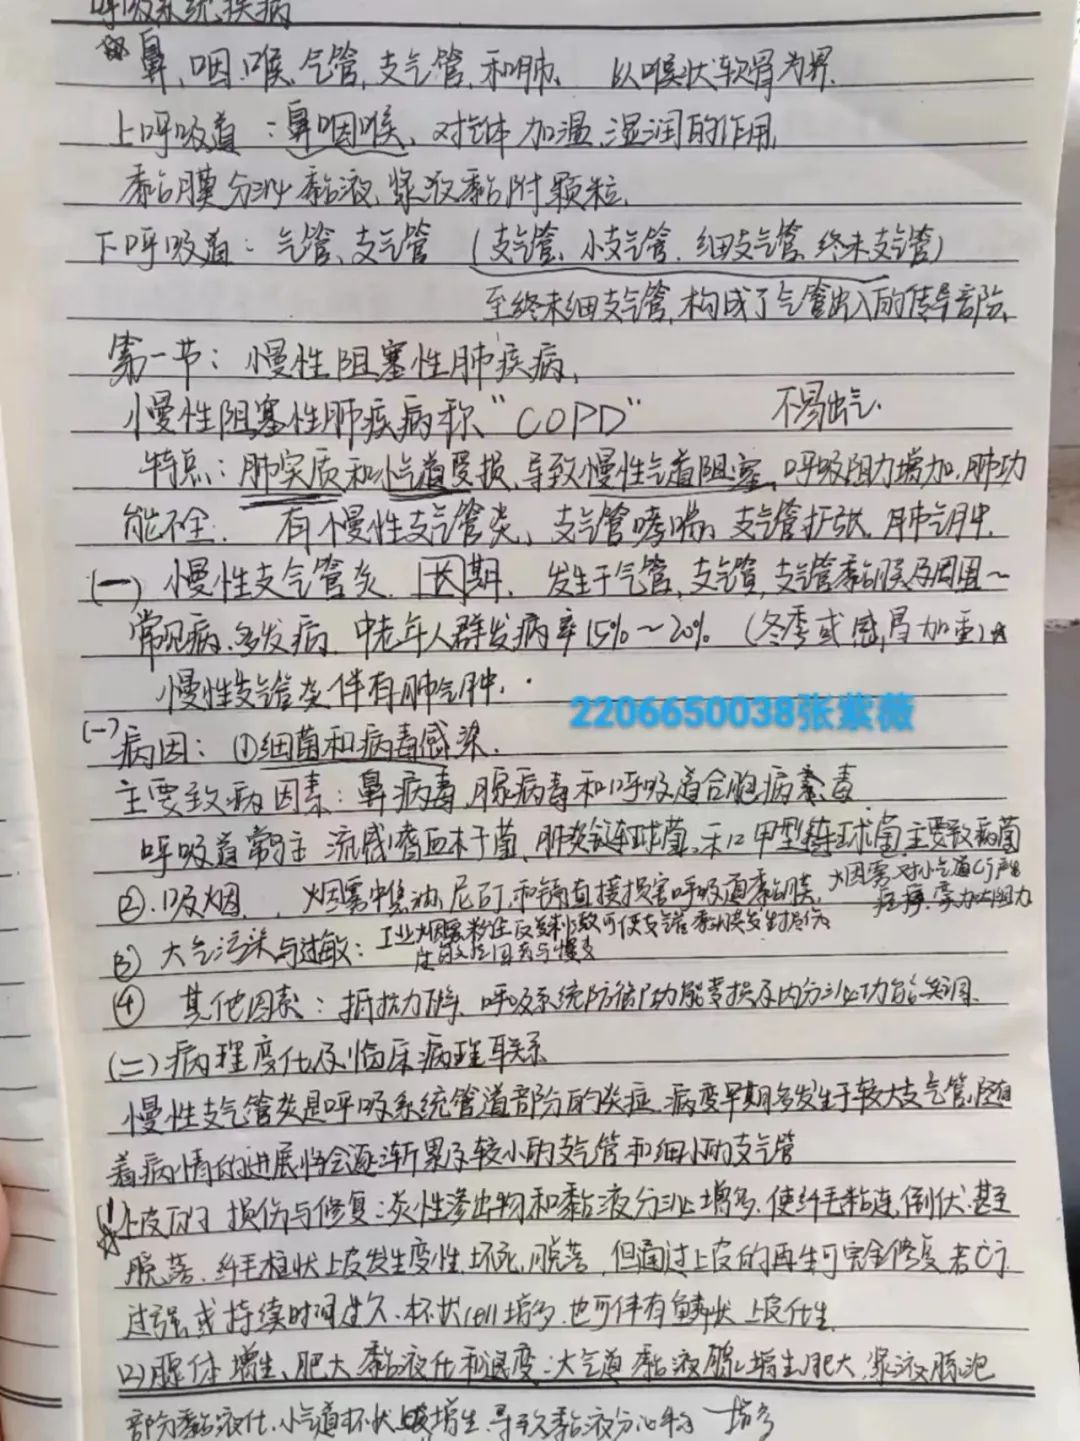 呼吸系统疾病
鼻、咽、喉、气管、支气管、和肺、 以喉状软骨为界.
上呼吸道：鼻咽喉、对气体 加温、湿润的作用,
黏膜分泌 黏液、浆液黏附颗粒.
下呼吸道：气管、支气管 (支气管、小支气管、细支气管、终末支气管)
至终末细支气管,构成了气管出入的传导部份、
第一节：慢性阻塞性肺疾病、
慢性阻塞性肺疾病称"COPD" 不易出气.
特点：肺实质和小气道受损、导致慢性气道阻塞、呼吸阻力增加、肺功
能不全. 有慢性支气管炎、支气管哮喘、支气管扩张、肺气肿.
(一) 慢性支气管炎. 长期. 发生于气管,支气管,支气管黏膜及周围~
常见病、多发病、中老年人群发病率15%~20% (冬季或感冒加重)
慢性支气管炎伴有肺气肿.
2206650038张紫薇
(一) 病因：①细菌和病毒感染.
主要致病因素：鼻病毒、腺病毒和呼吸道合胞病毒
呼吸道常驻 流感嗜血杆菌、肺炎链球菌、和 甲型链球菌 主要致病菌
②.吸烟. 烟雾中焦油,尼古丁和镉直接损害呼吸道黏膜, 烟雾对小气道
痉挛,增加阻力
③ 大气污染与过敏：工业烟雾粉尘 刺激 可使支气管黏膜发生损伤
过敏性因素与慢支
④ 其他因素：抵抗力下降、呼吸系统防御功能受损及内分泌功能失调.
(二) 病理变化及临床病理联系
慢性支气管炎是呼吸系统管道部份的炎症.病变早期多发生于较大支气管,随
着病情的进展将会逐渐累及较小的支气管和细小的支气管
上皮的 损伤与修复：炎性渗出物和黏液分泌增多,使纤毛粘连,倒伏、甚至
脱落. 纤毛柱状上皮发生变性、坏死,脱落,但通过上皮的再生可完全修复 若
过强或持续时间过久、杯状cell增多、也可伴有鳞状上皮化生.
(2)腺体增生、肥大 黏液化和退变：大气道黏液腺增生肥大、浆液腺泡
部分黏液化,小气道杯状 增生、导致黏液分泌物 增多